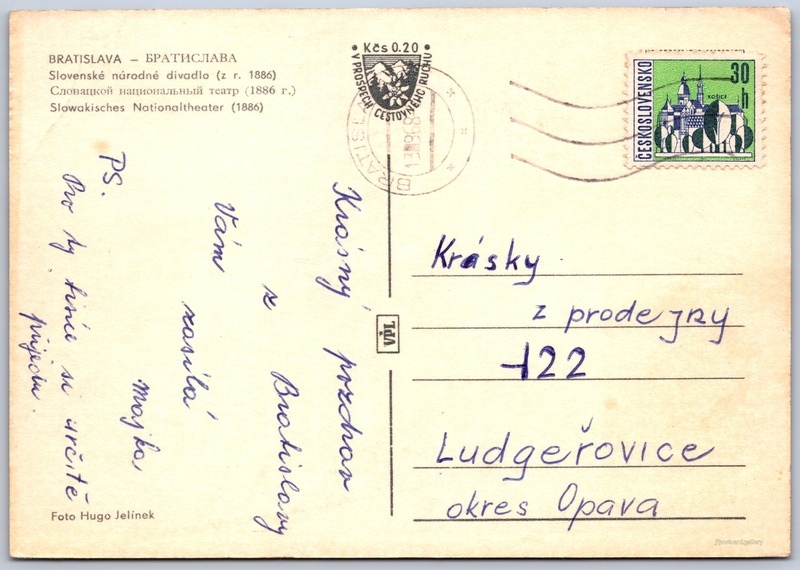 BRATISLAVA – БРАТИСЛАВА
Slovenské národné divadlo (z r. 1886)
Словацкой национальный театр (1886 г.)
Slowakisches Nationaltheater (1886)
• Kčs 0.20 •
V PROSPECH CESTOVNÉHO RUCHU
BRATISL
ČESKOSLOVENSKO
30 h
KOŠICE
Krásný pozdrav
z Bratislavy
Vám zasílá
Majka
PS.
Pro ty si určitě
přijedu.
VpL
Krásky
z prodejny
122
Ludgeřovice
okres Opava
Foto Hugo Jelínek